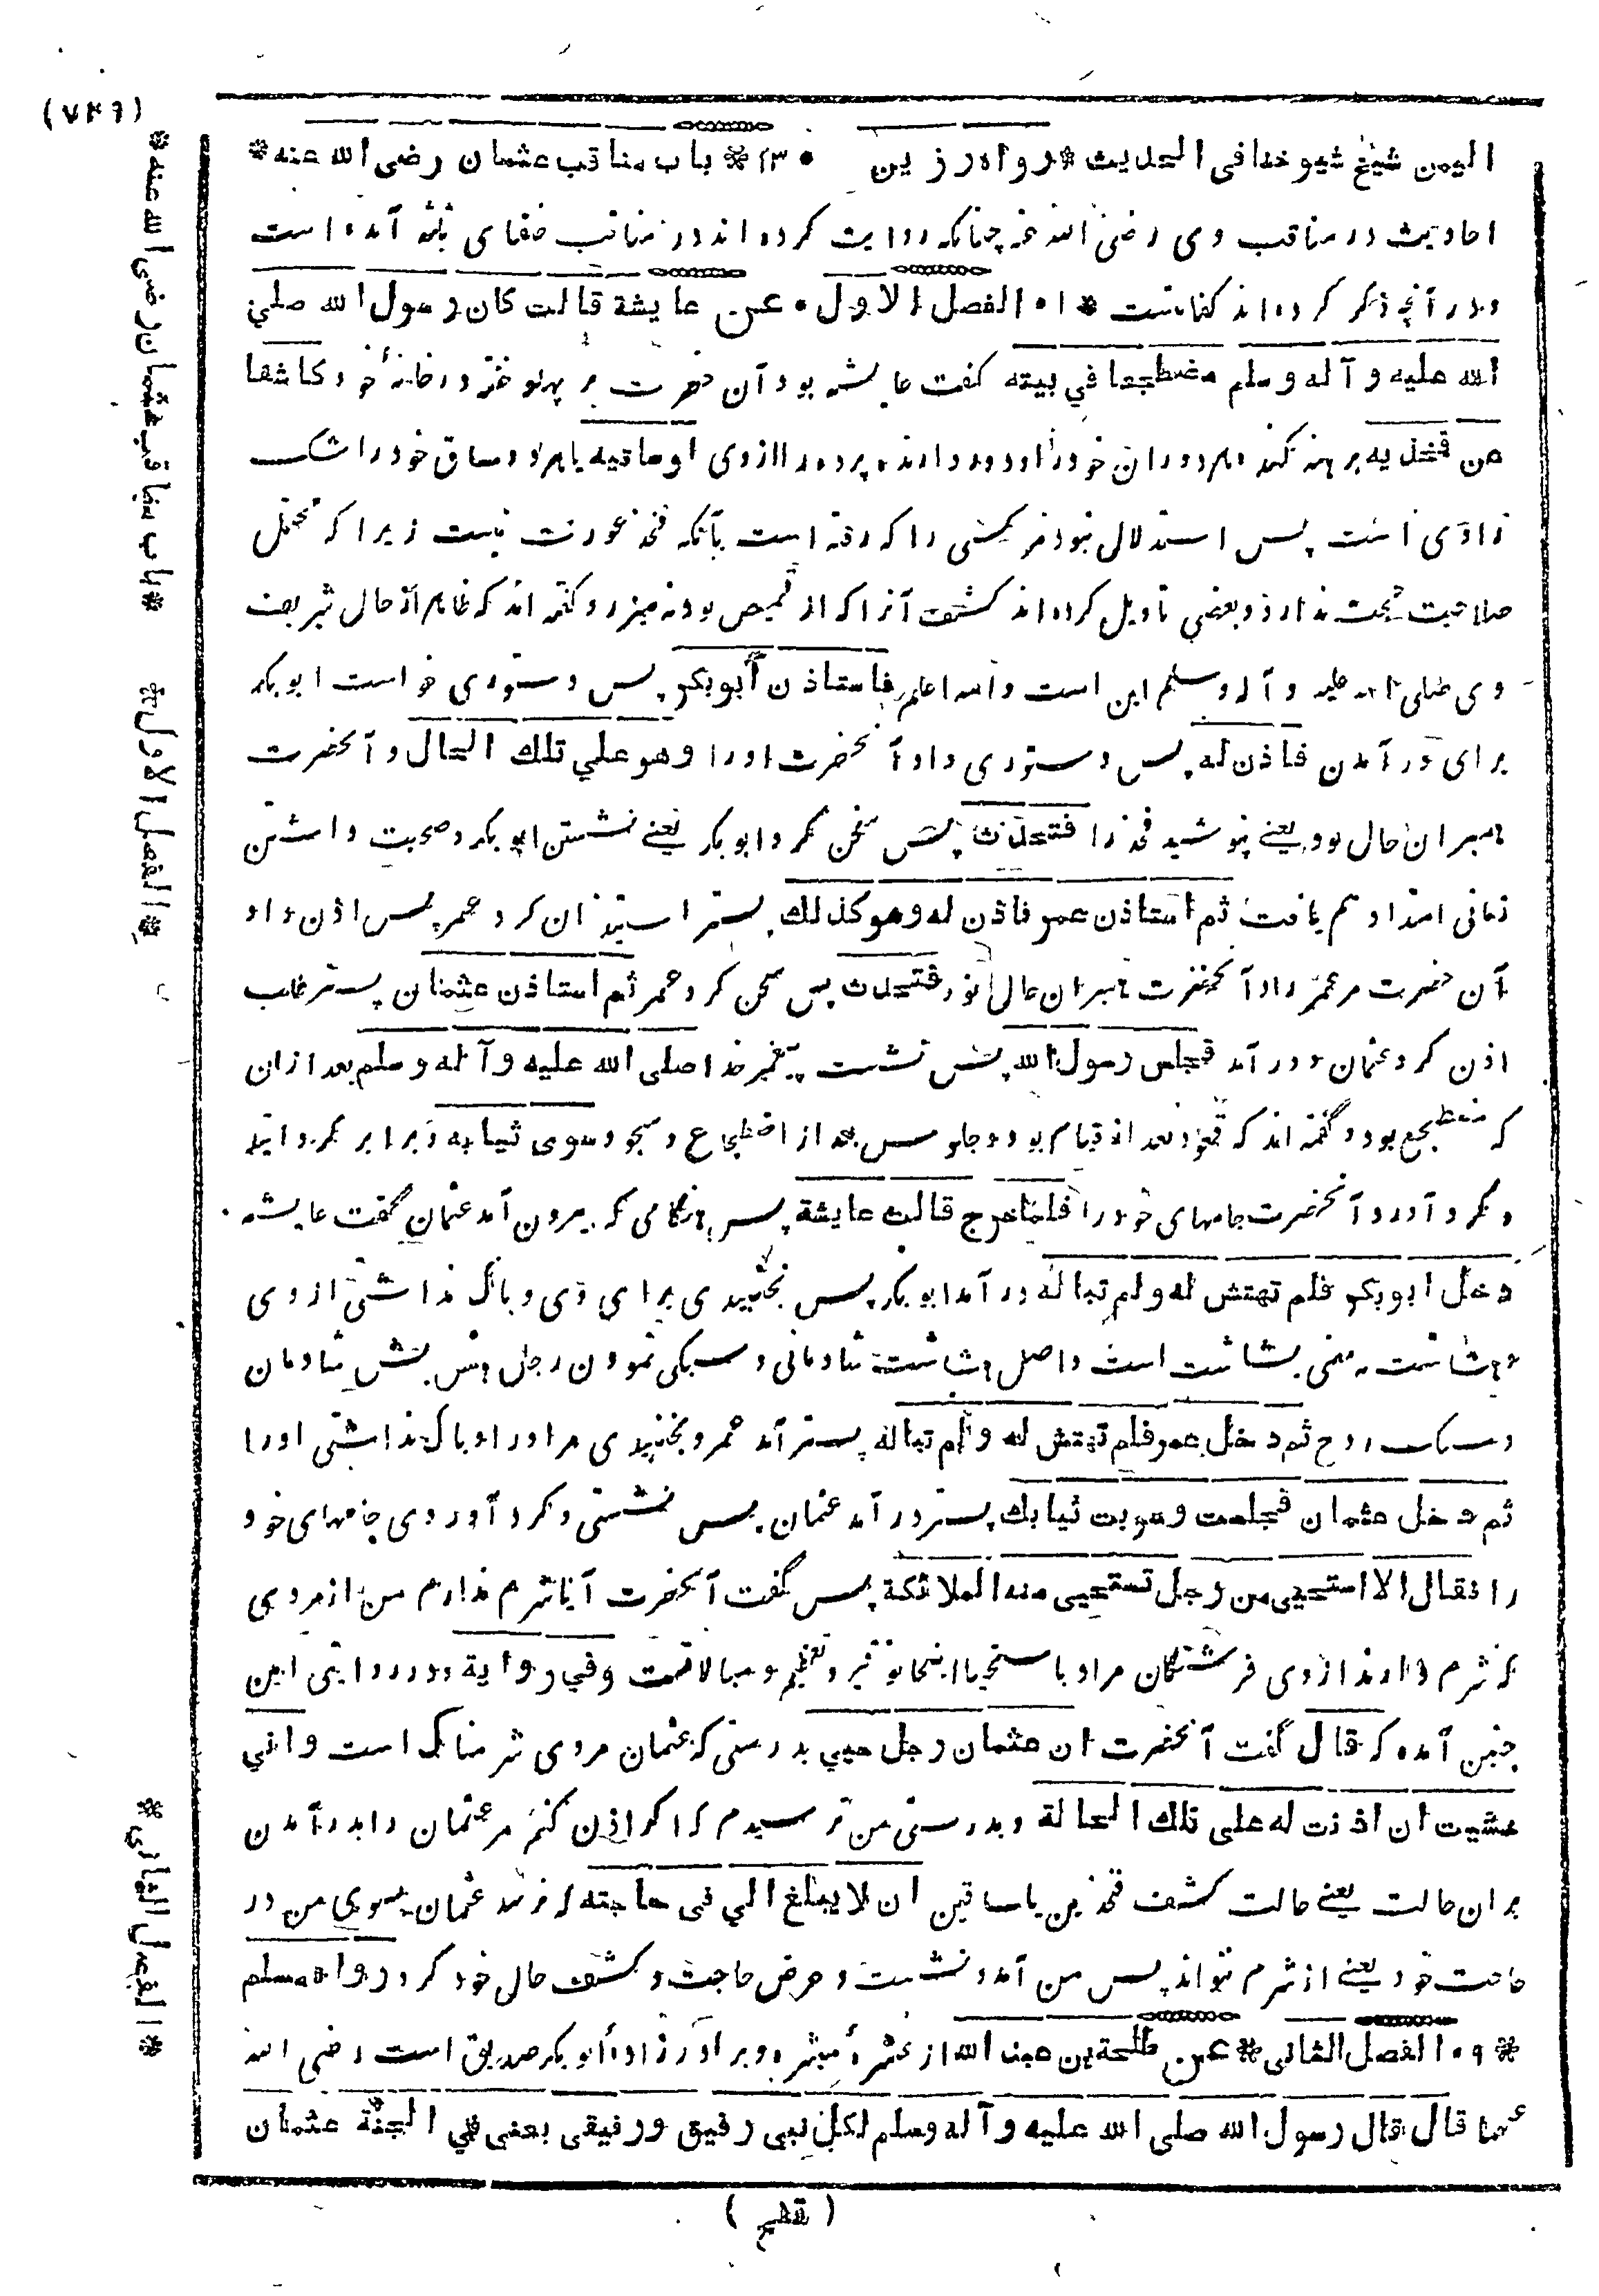 (٧٣٦)
اليمن شيخ شيوخنا في الحديث * رواه رزين • ١٣ * باب مناقب عثمان رضى الله عنه *
احاديث در مناقب وى رضى الله عنه چنانكه روايت كرده اند در مناقب خلفاى ثلثه آمده است
ودر آنچه ذكر كرده اند كفايتست * ١ • الفصل الاول • عن عايشة قالت كان رسول الله صلي
الله عليه و آله وسلم مضطجعا في بيته گفت عايشه بود آن حضرت بر پهلو خفته در خانهٔ خود كاشفا
عن فخذيه برهنه كننده هر دو ران خود را و دور دارنده پرده را از وى اوساقيه يا هر دو ساق خود را شك
راوى است پس استدلال نبود مر كسى را كه رفته است بآنكه فخذ عورت نيست زيرا كه محتمل
صلاحيت حجت ندارد وبعضي تاويل كرده اند كشف آنرا كه از قميص بود نه ميزر و گفته اند كه ظاهر از حال شريف
وى صلى الله عليه و آله وسلم اين است والله اعلم فاستاذن أبوبكر پس دستورى خواست ابو بكر
براى در آمدن فاذن له پس دستورى داد آنحضرت اورا وهو علي تلك الحال و آنحضرت
همبران حال بود يعنے نپوشيد فخذ را فتحدث پس سخن كرد ابوبكر يعنے نشستن ابو بكر وصحبت داشتن
زمانى امتداد هم يافت ثم استاذن عمر فاذن له وهو كذلك پستر استيذان كرد عمر پس اذن داد
آن حضرت مر عمر را و آنحضرت همبران حال بود فتحدث پس سخن كرد عمر ثم استاذن عثمان پستر طلب
اذن كرد عثمان ودر آمد فجلس رسول الله پس نشست پيغمبر خدا صلى الله عليه و آله وسلم بعد ازان
كه مضطجع بود و گفته اند كه قعود بعد از قيام بود و جلوس بعد از اضطجاع وسجود وسوى ثيابه و برابر گردانيد
و گرد آورد و آنحضرت جامهاى خود را فلما خرج قالت عايشة پس هنگامى كه بيرون آمد عثمان گفت عايشه
دخل ابوبكر فلم تهتش له ولم تباله در آمد ابو بكر پس نجنبيدى براى وى وباك نداشتى از وى
وهشاشت بمعنى بشاشت است واصل هشاشت شادمانى و سبكى نمودن رجل هش بش شادمان
و سبك روح ثم دخل عمر فلم تهتش له ولم تباله پستر آمد عمر ونجنبيدى مر اورا و باك نداشتى اورا
ثم دخل عثمان فجلست وسويت ثيابك پستر در آمد عثمان پس نشستى و گرد آوردى جامهاى خود
را فقال الا استحيى من رجل تستحيى منه الملائكة پس گفت آنحضرت آيا شرم ندارم من از مردى
كه شرم دارند از وى فرشتگان مراد باستحيا اينجا توقير وتعظيم و مبالاتست وفي رواية ودر روايتى اين
چنين آمده كه قال گفت آنحضرت ان عثمان رجل حيي بدرستى كه عثمان مردى شرمناك است واني
خشيت ان اذنت له على تلك الحالة وبدرستى من ترسيدم كه اگر اذن كنم مر عثمان را بدر آمدن
بران حالت يعنے حالت كشف فخذين يا ساقين ان لا يبلغ الي فى حاجته كه نرسد عثمان بسوى من در
حاجت خود يعنے از شرم نتواند پس من آمد ونشست و عرض حاجت و كشف حال خود كرد رواه مسلم
* ٩ • الفصل الثانى * عن طلحة بن عبيد الله از عشرهٔ مبشره و برادر زادهٔ ابو بكر صديق است رضى الله
عنهما قال قال رسول الله صلى الله عليه و آله وسلم لكل نبي رفيق ورفيقى يعنى في الجنة عثمان
* باب مناقب عثمان رضى الله عنه *
* الفصل الاول *
* الفصل الثانى *